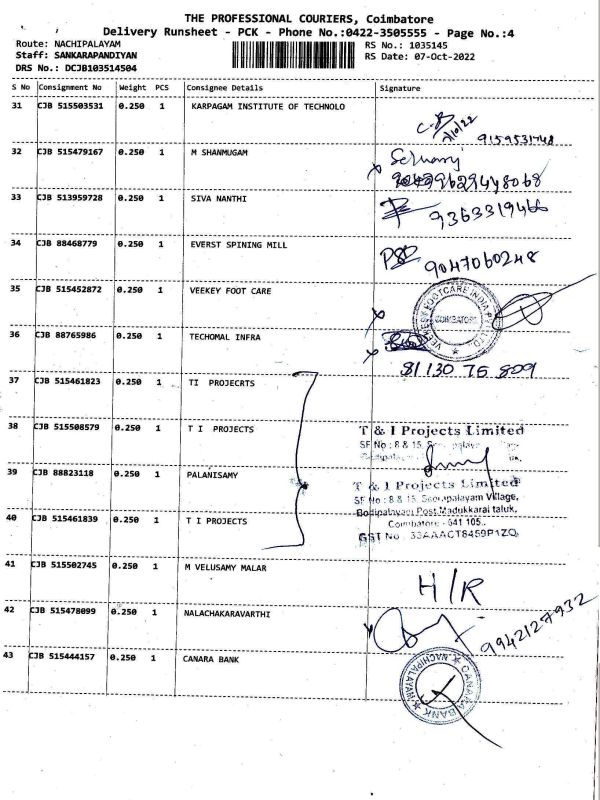 THE PROFESSIONAL COURIERS, Coimbatore
Delivery Runsheet - PCK - Phone No.:0422-3505555 - Page No.:4
Route: NACHIPALAYAM RS No.: 1035145
Staff: SANKARAPANDIYAN RS Date: 07-Oct-2022
DRS No.: DCJB103514504
S No Consignment No Weight PCS Consignee Details Signature
31 CJB 515503531 0.250 1 KARPAGAM INSTITUTE OF TECHNOLO
7/10/22 9159531748
32 CJB 515479167 0.250 1 M SHANMUGAM
9629448068
33 CJB 513959728 0.250 1 SIVA NANTHI
9363319466
34 CJB 88468779 0.250 1 EVERST SPINING MILL
9047060248
35 CJB 515452872 0.250 1 VEEKEY FOOT CARE
FOOTCARE INDIA
COIMBATORE
36 CJB 88765986 0.250 1 TECHOMAL INFRA
81130 75 809
37 CJB 515461823 0.250 1 TI PROJECRTS
38 CJB 515508579 0.250 1 T I PROJECTS
T & I Projects Limited
SF No : 8 & 15,
39 CJB 88823118 0.250 1 PALANISAMY
T & I Projects Limited
SF No : 8 & 15, Seerapalayam Village,
Bodipalayam Post, Madukkarai taluk,
40 CJB 515461839 0.250 1 T I PROJECTS
Coimbatore - 641 105.
GST No : 33AAACT8459P1ZQ
41 CJB 515502745 0.250 1 M VELUSAMY MALAR
H/R
42 CJB 515478099 0.250 1 NALACHAKARAVARTHI
9942127932
43 CJB 515444157 0.250 1 CANARA BANK
CANARA BANK
NACHIPALAYAM